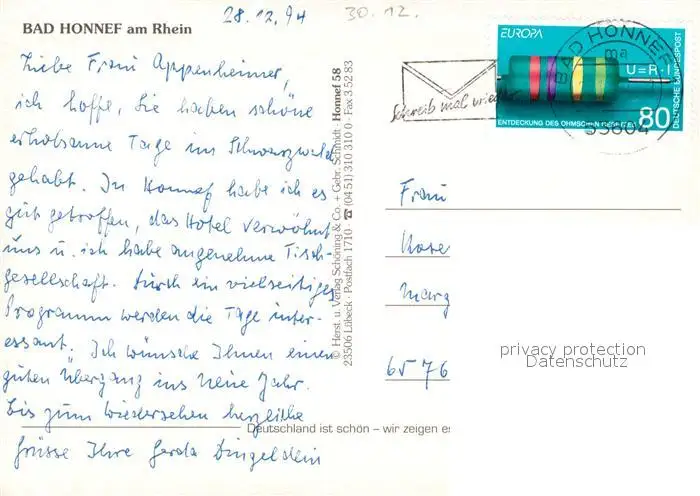 28.12.94
30.12.
BAD HONNEF am Rhein
Liebe Frau Appenheimer,
ich hoffe, Sie haben schöne
erholsame Tage im Schwarzwald
gehabt. In Honnef habe ich es
gut getroffen, das Hotel verwöhnt
uns u. ich habe angenehme Tisch-
gesellschaft. Durch ein vielseitiges
Programm werden die Tage inter-
essant. Ich wünsche Ihnen einen
guten Übergang ins Neue Jahr.
Bis zum Wiedersehen herzliche
Grüsse Ihre Gerda Dingeldein
Deutschland ist schön – wir zeigen es
© Herst. u. Verlag Schöning & Co. + Gebr. Schmidt · Honnef 58
23506 Lübeck · Postfach 1710 · ☎ (04 51) 310 310 0 · Fax 3 52 83
Schreib mal wieder
EUROPA
BAD HONNEF
ma
U=R·I
ENTDECKUNG DES OHMSCHEN GESETZES
80
DEUTSCHE BUNDESPOST
53604
Frau
Rose
Marg
6576
privacy protection
Datenschutz